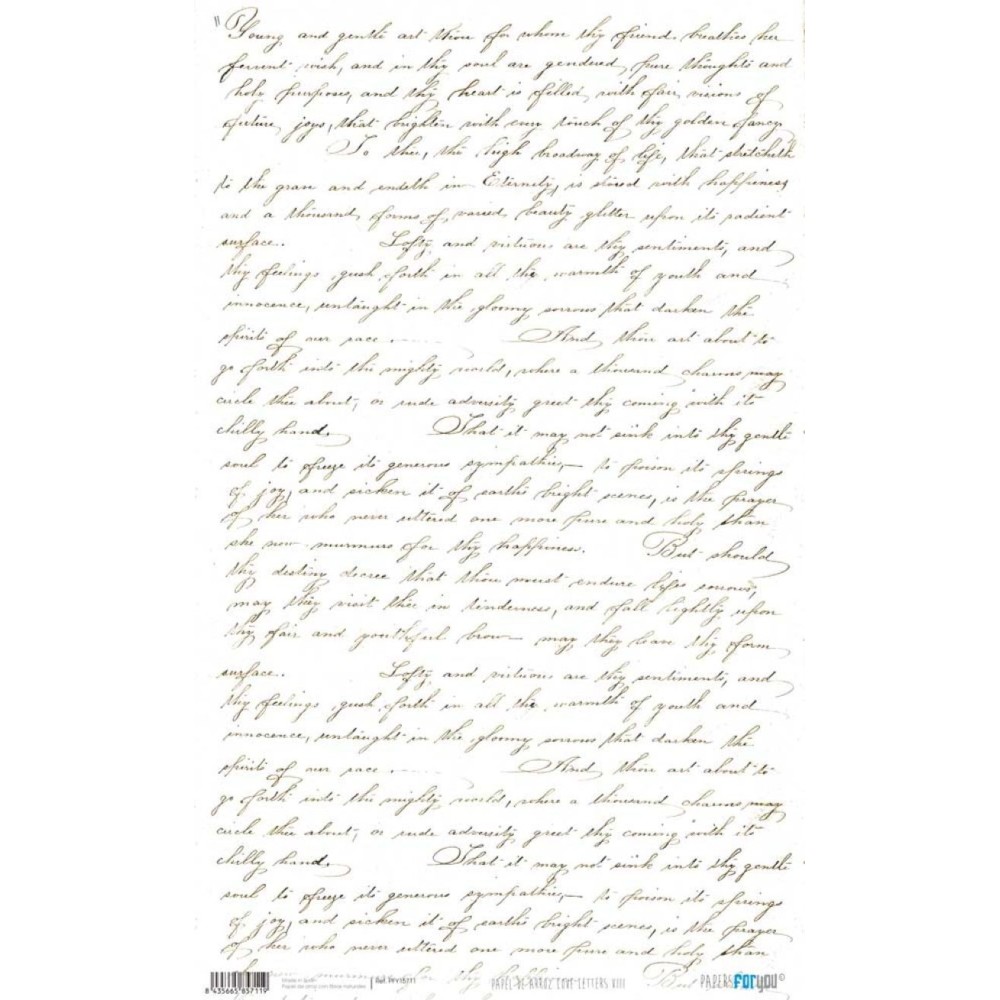 "Young and gentle art thou for whom thy friend breathes her
fervent wish, and in thy soul are gendered pure thoughts and
holy purposes, and thy heart is filled with fair visions of
future joys, that brighten with every touch of thy golden fancy
To thee, the high broadway of life, that stretcheth
to the grave and endeth in Eternity, is stored with happiness
and a thousand forms of varied beauty glitter upon its radient
surface.. Lofty and virtuous are thy sentiments, and
thy feelings gush forth in all the warmth of youth and
innocence, untaught in the gloomy sorrows that darken the
spirits of our race . - - - - - And thou art about to
go forth into the mighty world, where a thousand charms may
circle thee about, or rude adversity greet thy coming with its
chilly hand. That it may not sink into thy gentle
soul to freeze its generous sympathies,— to poison its springs
of joy, and sicken it of earth's bright scenes, is the prayer
of her who never uttered one more pure and holy than
she now murmurs for thy happiness. But should
thy destiny decree that thou must endure life's sorrows,
may they visit thee in tenderness, and fall lightly upon
thy fair and youthful brow— may they leave thy form
surface.. Lofty and virtuous are thy sentiments, and
thy feelings gush forth in all the warmth of youth and
innocence, untaught in the gloomy sorrows that darken the
spirits of our race . - - - - - And thou art about to
go forth into the mighty world, where a thousand charms may
circle thee about, or rude adversity greet thy coming with its
chilly hand. That it may not sink into thy gentle
soul to freeze its generous sympathies,— to poison its springs
of joy, and sicken it of earth's bright scenes, is the prayer
of her who never uttered one more pure and holy than
murmurs for thy But
8 435665 857119
Made in Spain
PAPEL DE ARROZ LOVE LETTERS VIII
PAPERSFORyou©